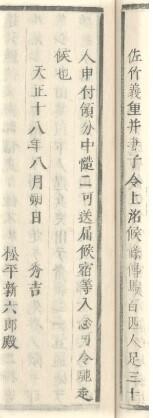 佐竹義重并妻子令上洛候條傳馬百四人足三十
人申付領分中慥二可送届候宿等入念可令馳走
候也
天正十八年八月朔日　秀吉
松平新六郎殿